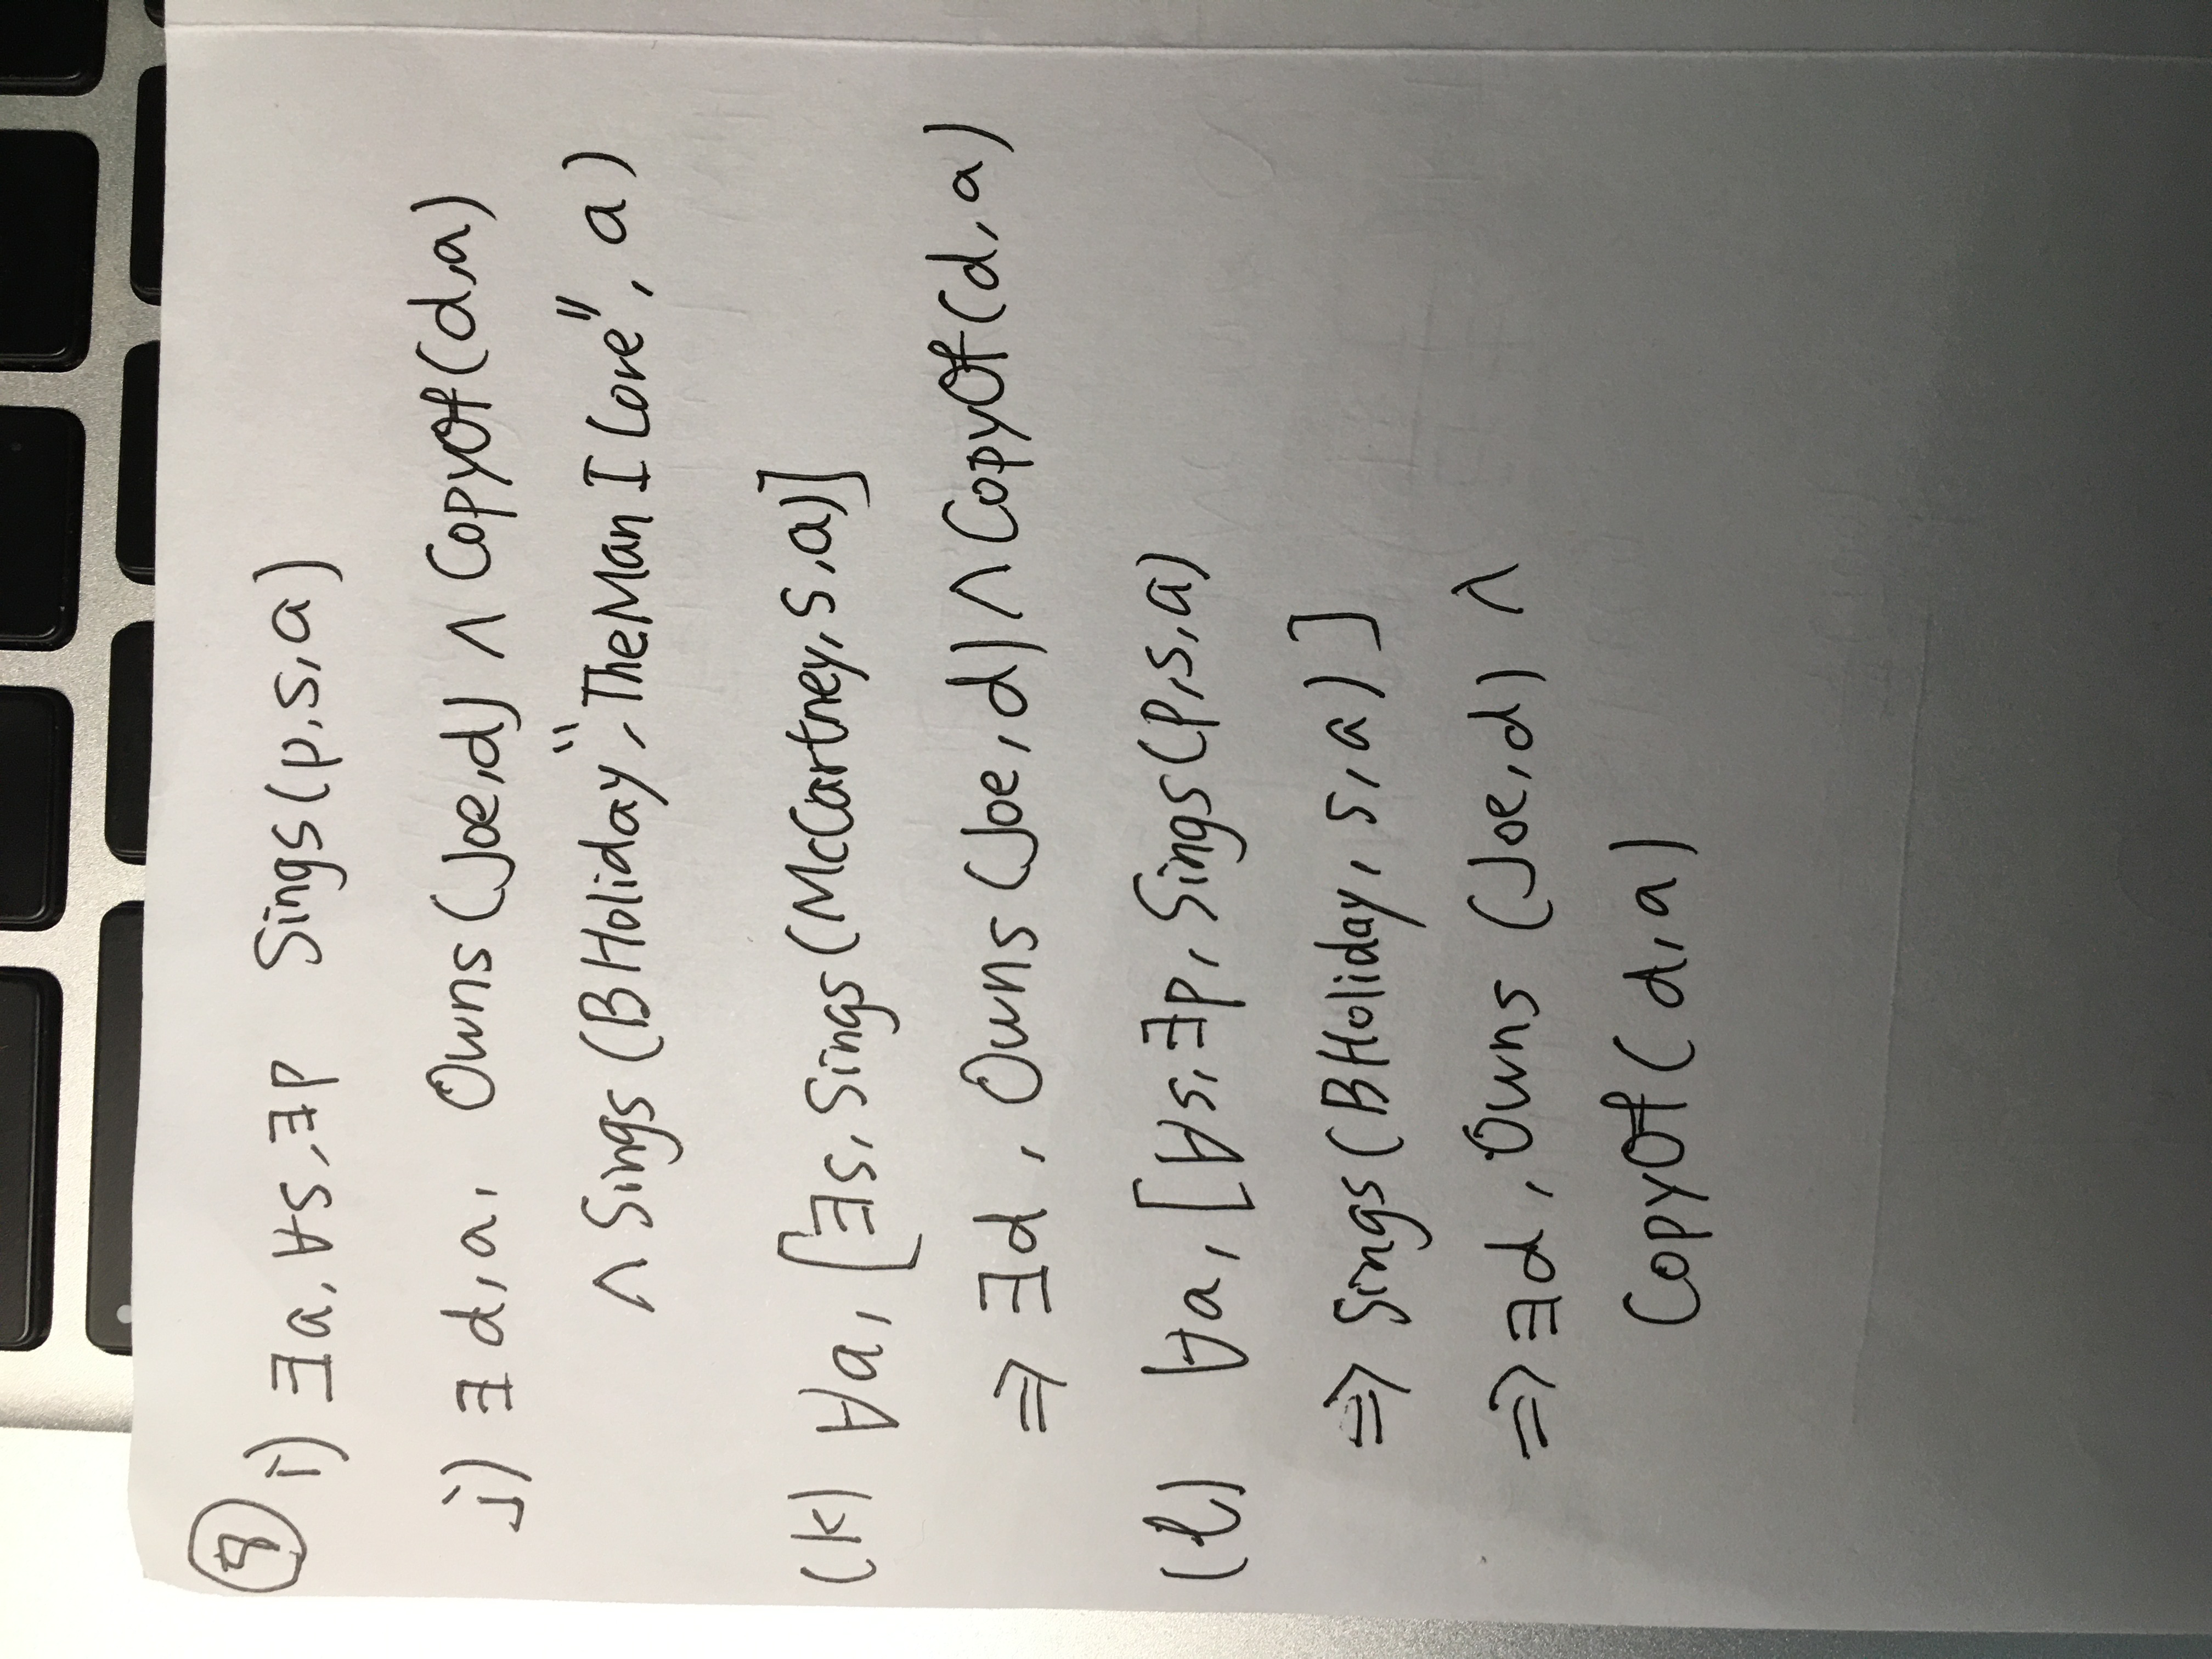 8 i) ∃a, ∀s, ∃p Sings(p,s,a)
j) ∃ d, a, Owns(Joe,d) ∧ CopyOf(d,a)
∧ Sings(BHoliday, "TheMan I Love", a)
(k) ∀a, [∃s, Sings(McCartney, s,a)]
⇒ ∃d, Owns(Joe, d) ∧ CopyOf(d, a)
(l) ∀a, [∀s, ∃p, Sings(p,s,a)
⇒ Sings(BHoliday, s, a)]
⇒ ∃d, Owns (Joe, d) ∧
CopyOf(d, a)